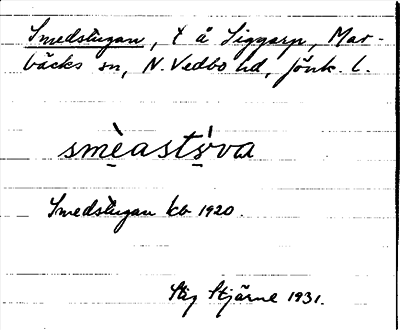 Smedstugan, t å Siggarp, Mar-
bäcks sn, N. Vedbo hd, Jönk. l.
smèastu̇va
Smedstugan kb 1920.
Stig Stjärne 1931.